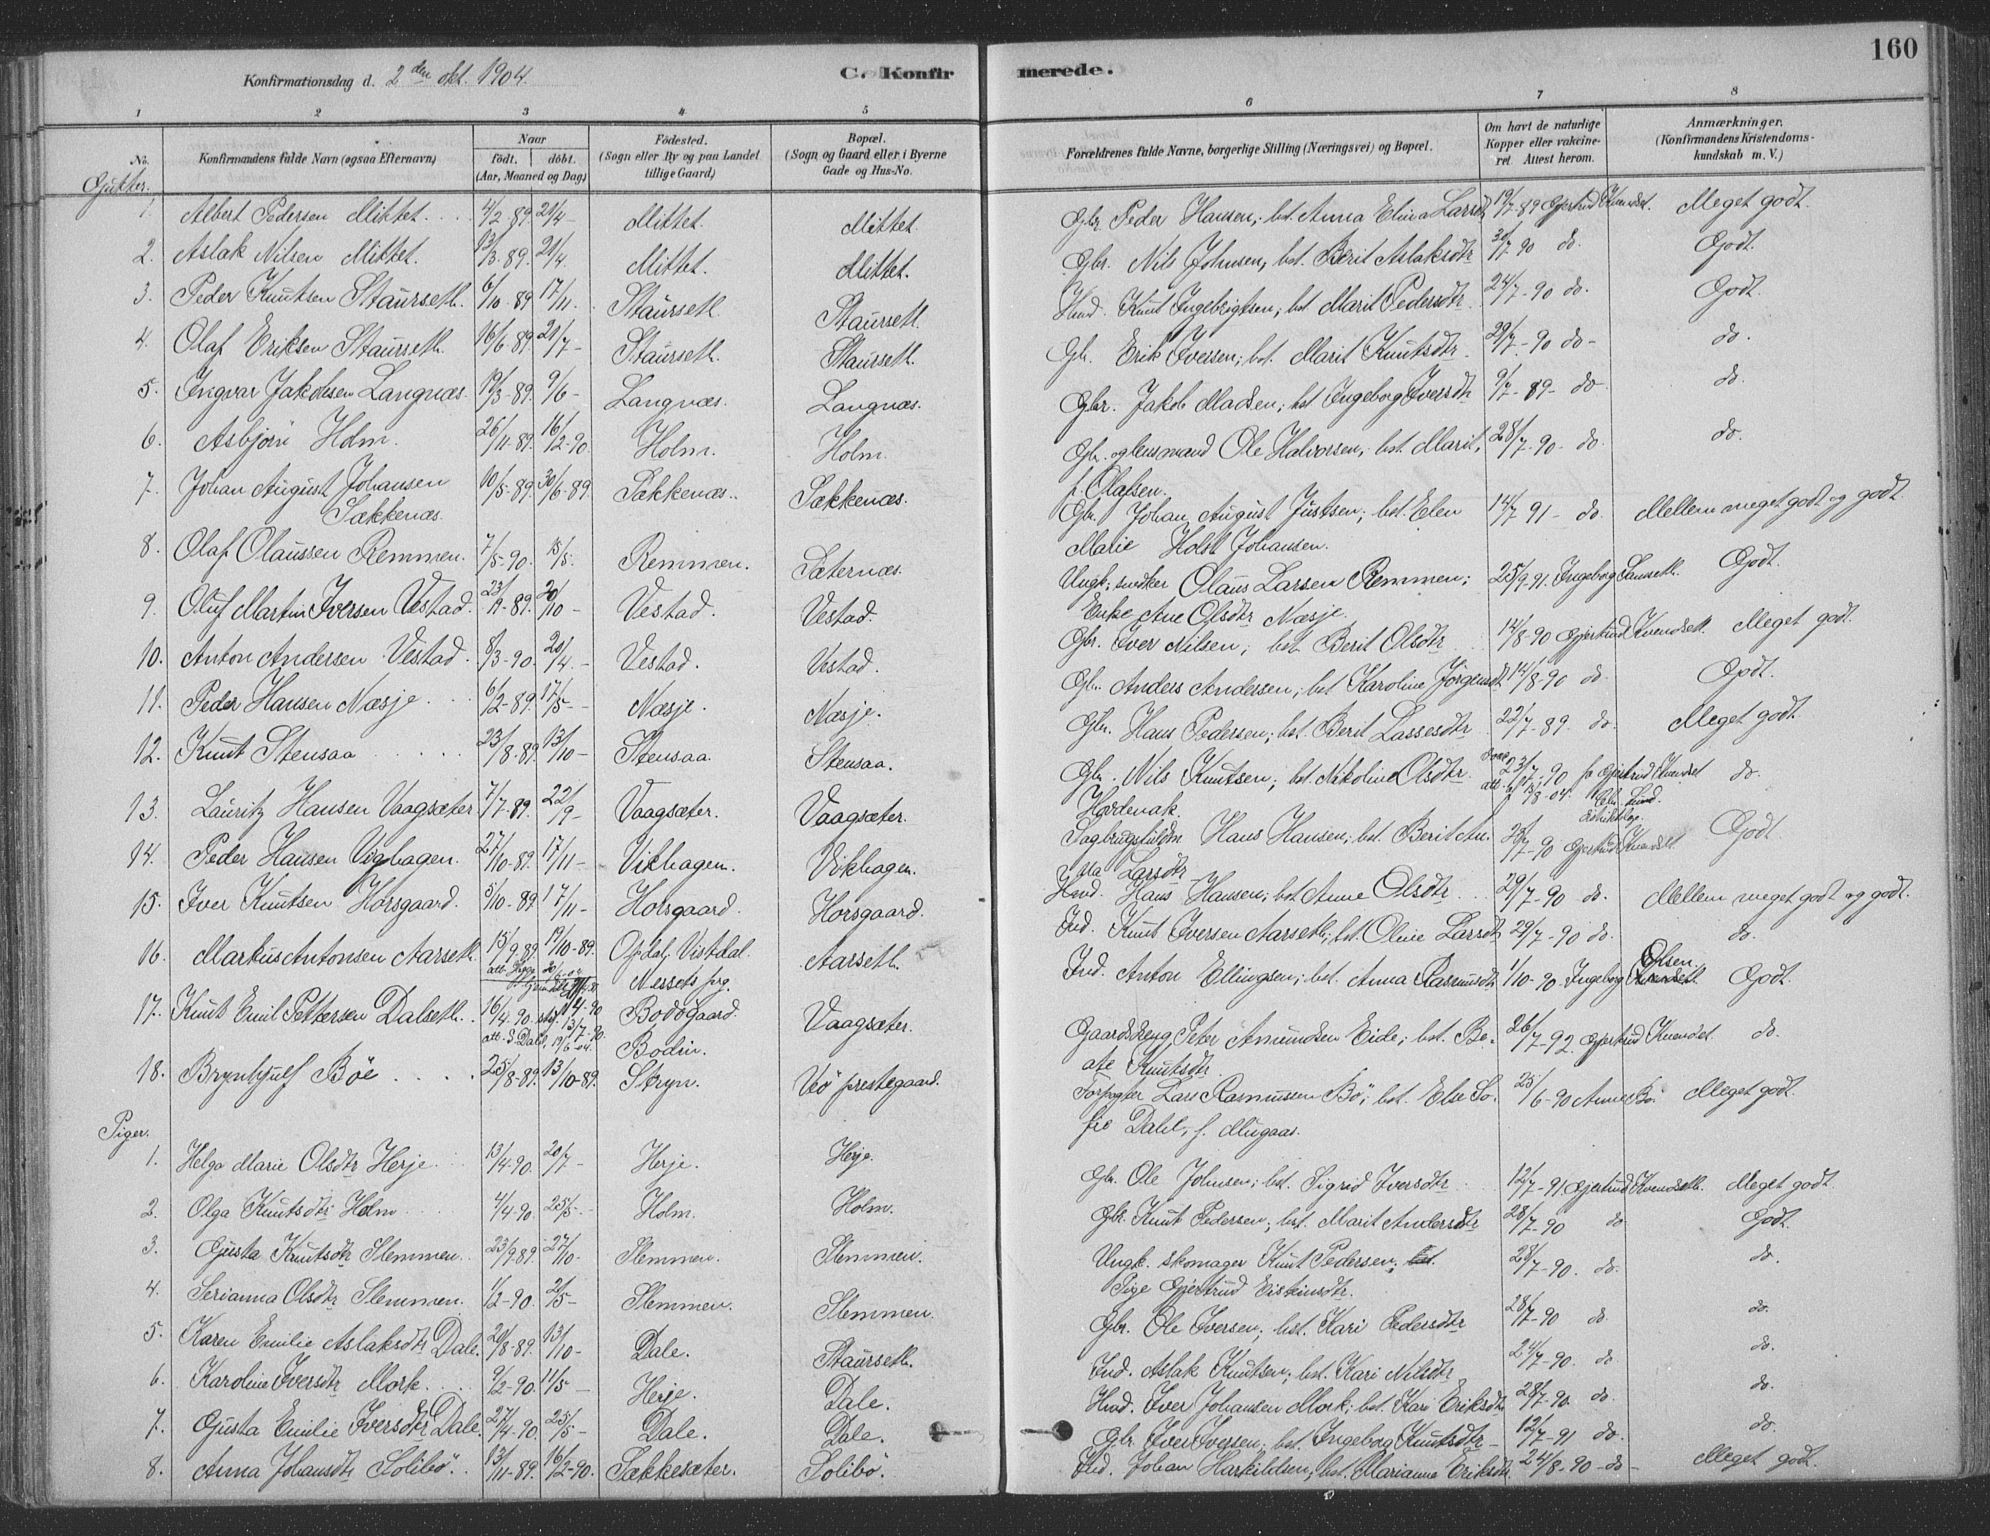 160
Konfirmationsdag d. 2den okt. 1904.
C. Konfirmerede.
1 2 3 4 5 6 7 8
No.
Konfirmandens fulde Navn (ogsaa Efternavn)
Naar
født. døbt.
(Aar, Maaned og Dag)
Fødested.
(Sogn eller By og paa Landet tillige Gaard)
Bopæl.
(Sogn og Gaard eller i Byerne Gade og Hus-No.
Forældrenes fulde Navne, borgerlige Stilling (Næringsvei) og Bopæl.
Om havt de naturlige Kopper eller vaccineret. Attest herom.
Anmærkninger.
(Konfirmandens Kristendomskundskab m. V.)
Gutter.
1. Albert Pedersen Mittet. 4/2-89. 21/4- Mittet. Mittet. Gbr. Peder Hansen; hst. Anna Elina Larsdt 19/7-89 Gjertrud Kvendset. Meget godt.
2. Aslak Nilsen Mittet. 13/3-89. 21/4 Mittet. Mittet. Gbr. Nils Johnsen, hst. Berit Aslaksdtr 30/7-90 do. Godt.
3. Peder Knutsen Staurseth. 6/10-89 17/11. Staurseth Staurseth. Hmd. Knut Ingebrigtsen; hst Marit Pedersdtr. 24/7-90 do. Godt.
4. Olaf Eriksen Staurseth. 16/6-89. 21/7- Staurseth. Staurseth. Gb. Erik Iversen; hst. Marit Knutsdtr. 29/7-90 do- do.
5. Ingvar Jakobsen Langnæs. 19/3-89. 9/6- Langnæs. Langnæs. Gbr. Jakob Madsen; hst Ingeborg Iversdtr 9/7-89- do- do.
6. Asbjørn Holm. 26/11-89. 16/2-90. Holm. Holm. Gbr. og lensmand Ole Halvorsen; hst. Marit, f. Olafsen. 28/7-90- do. do.
7. Johan August Johansen Sækkenæs. 10/5-89. 30/6-89. Sækkenæs. Sækkenæs. Gbr. Johan August Justsen; hst. Elen Marie Holst Johansen. 14/7 91- do. Mellem meget godt og godt.
8. Olaf Olaussen Remmen. 7/5-90. 15/5. Remmen. Sæternæs. Ungk; snedker Olaus Larsen Remmen; Enke Ane Olsdtr Næsje. 25/9-91. Ingeborg Godt.
9. Oluf Martin Iversen Vestad. 23/9-89. 20/10- Vestad. Vestad. Gbr. Iver Nilsen; hst. Berit Olsdtr 14/8-90 Gjertrud Kvendseth. Meget godt.
10. Anton Andersen Vestad. 8/3-90. 20/4.- Vestad. Vestad. Gbr. Anders Andersen; hst Karoline Jørgensdt 14/8-90 do. Godt.
11. Peder Hansen Næsje. 6/2-89. 17/5- Næsje. Næsje. Gbr. Hans Pedersen; hst. Berit Lassesdtr 22/7-89. do. Meget godt.
12. Knut Stensaa 23/8-89. 13/10- Stensaa. Stensaa. Gbr. Nils Knutsen; hst. Nikoline Olsdtr. Hordenak. 23/7-90 fr Gjertrud Kvendset do.
13. Lauritz Hansen Vaagsæter 7/7-89. 22/9- Vaagsæter. Vaagsæter. Hans Hansen; hst. Berit Anna Larsdtr 28/7-90 Gjertrud Kvendset. Godt.
14. Peder Hansen Vighagen. 27/10-89. 17/11- Vikhagen. Vikhagen. Hmd. Hans Hansen; hst Anne Olsdtr 29/7-90 do. Mellem meget godt og godt.
15. Iver Knutsen Horsgaard. 5/10-89 17/11- Horsgaard. Horsgaard. Ind. Knut Iversen Aarseth; hst. Oline Larsdt 29/7-90 do. do.
16. Markus Antonsen Aarseth. 15/9-89 19/10-89. Opdal, Vistdal. Nessets prg. Aarseth. Ind. Anton Ellingsen; hst. Anna Rasmusdt 1/10-90. Ingeborg Olsen Godt.
17. Knut Emil Pettersen Dalseth. 16/4-90. Bodøgaard. Bodin. Vaagsæter. Gaardsbeng Peter Amundsen Eide; hst. Beate Knutsdtr. 26/7-92. Gjertrud Kvendset do.
18. Brynhjulf Bøe 25/8-89. 13/10-89. Stryn. Veø prestegaard. Forpagter Lars Rasmussen Bø; hst. Else Sofie Dahl, f. Mugaas. 25/6-90 Anne Bø. Meget godt.
Piger.
1. Helga Marie Olsdtr Herje. 13/4-90. 20/7- Herje. Herje. Gbr. Ole Johnsen; hst. Sigrid Iversdtr 12/7-91 Gjertrud Kvendseth. Meget godt.
2. Olga Knutsdtr Holm. 4/4-90. 25/5- Holm. Holm. Gbr. Knut Pedersen; hst. Marit Andersdtr 28/7-90 do Godt.
3. Gusta Knutsdtr Slemmen. 23/9-89. 27/10- Slemmen. Slemmen. Ungk. skomager Knut Pedersen; hst. Pige Gjertrud Eistinsdtr. 28/7-90. do. do.
4. Serianna Olsdtr Slemmen. 1/2-90. 2/5- Slemmen. Slemmen. Gbr. Ole Iversen; hst. Kari Pedersdtr 28/7-90 do. do.
5. Karen Emilie Aslaksdtr Dale. 20/8-89. 13/10- Dale. Staurseth. Ind. Aslak Knutsen; hst. Kari Nilsdtr 24/7-90. do do.
6. Karoline Iversdtr Mork. 9/2-90. 11/5- Herje. Dale. Hmd. Iver Johansen Mork; hst. Kari Eriksdt 28/7-90. do. do.
7. Gusta Emilie Iversdtr Dale. 27/4-90. 25/5- Dale. Dale. Gbr. Iver Iversen; hst. Ingeborg Knutsdtr- 12/7-91 do. do.
8. Anna Johansdtr Solibø. 13/11-89. 16/2-90. Sækkesæter. Solibø. Ind. Johan Harkildsen; hst. Marianne Eriksdt 24/8-90-do- Meget godt.